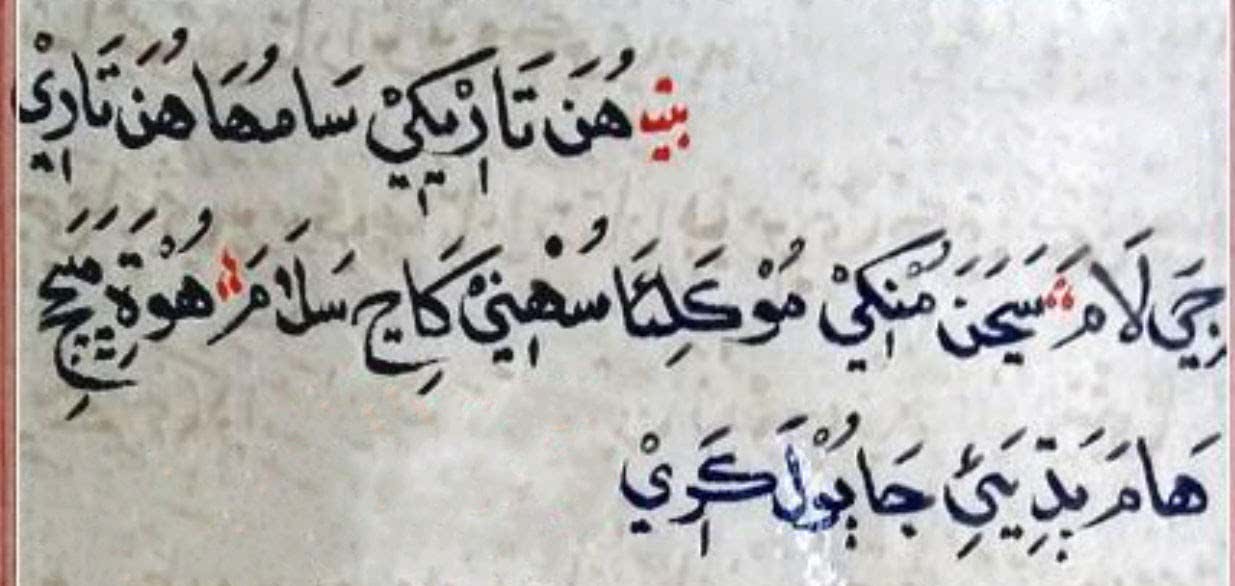 بيت هُنَ تَارِيْكِيْ سَامُهَا هُنَ تَارِيْ
جِيَ لَامَ سَيَجَنَ مُنْكِيْ مُوْكَلِئَا سُهْنِيْ كَاڃِ سَلَامَ هُوْءَ
هَامَ ٻَڌِيَئِي جَا ٻُوْلَ ڪَرِيْ